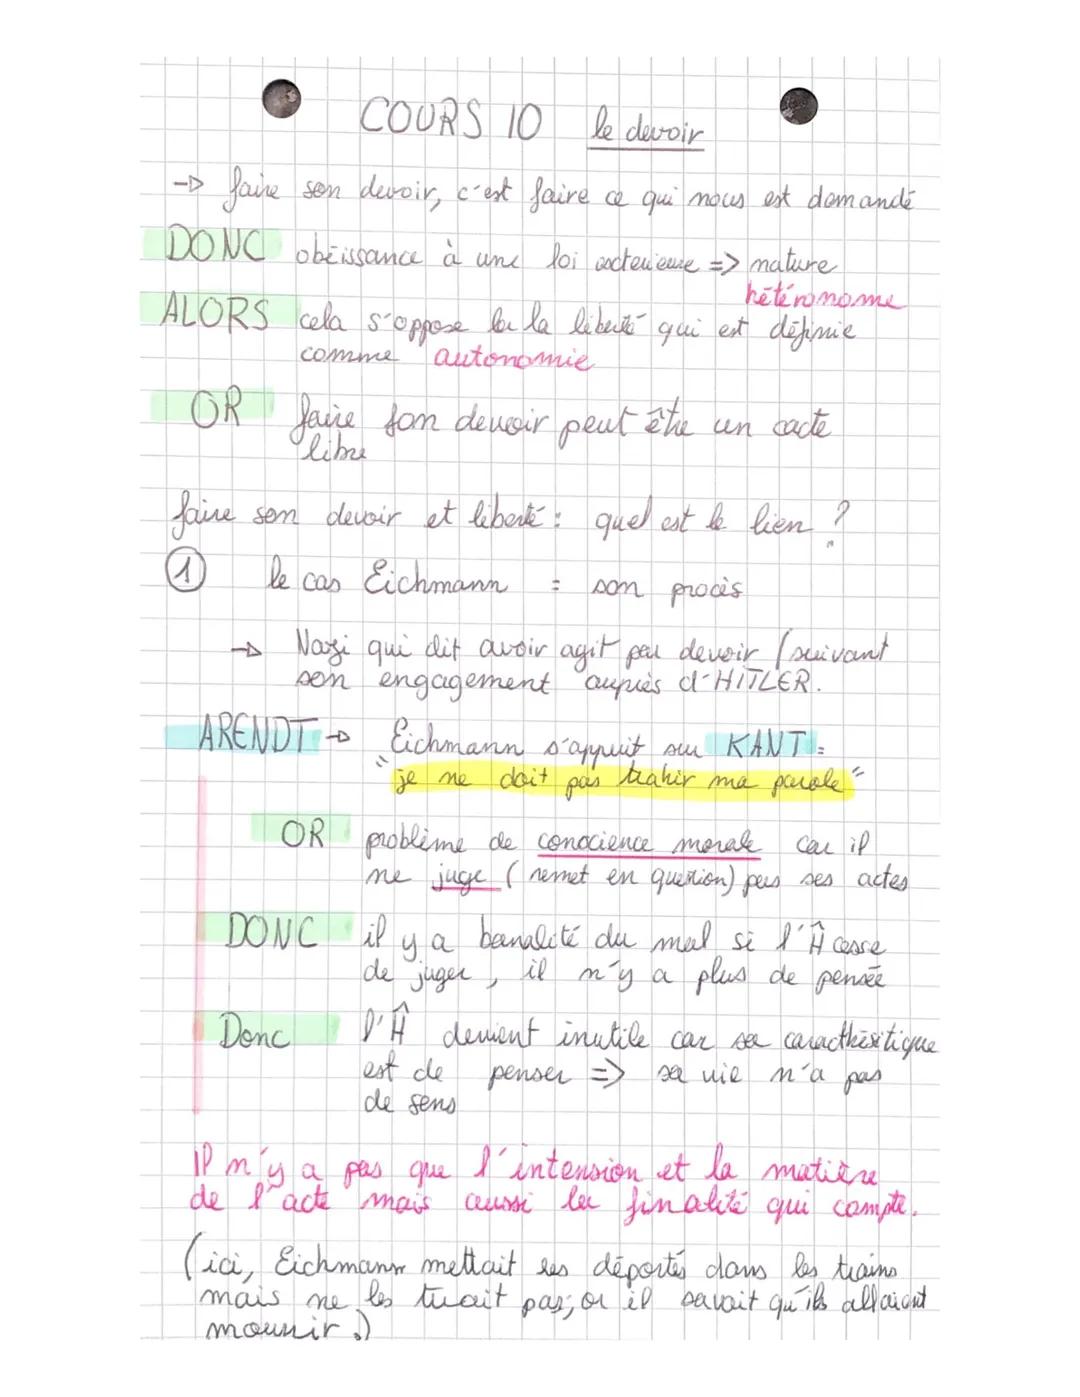 COURS 10 le devoir
→ faire son devoir, c'est faire ce qui nous est demandé
DONC obéissance à une loi exterieure => nature
hétéronome
ALORS cela s'oppose à la liberté qui est définie
comme autonomie
OR faire son devoir peut être un acte
libre
faire son devoir et liberté : quel est le lien ?
1 le cas Eichmann = son procès
→ Nazi qui dit avoir agit par devoir (suivant
son engagement auprès d'HITLER.
ARENDT → Eichmann s'appuit sur KANT :
"je ne doit pas trahir ma parole"
OR problème de conscience morale car il
ne juge (remet en question) pas ses actes
DONC il y a banalité du mal si l'Ĥ cesse
de juger, il n'y a plus de pensée
Donc l'Ĥ devient inutile car sa caracthésitique
est de penser => sa vie n'a pas
de sens
Il n'y a pas que l'intension et la matière
de l'acte mais aussi la finalité qui compte.
(ici, Eichmann mettait les déportés dans les trains
mais ne les tuait pas; or il savait qu'ils allaient
mourir.)